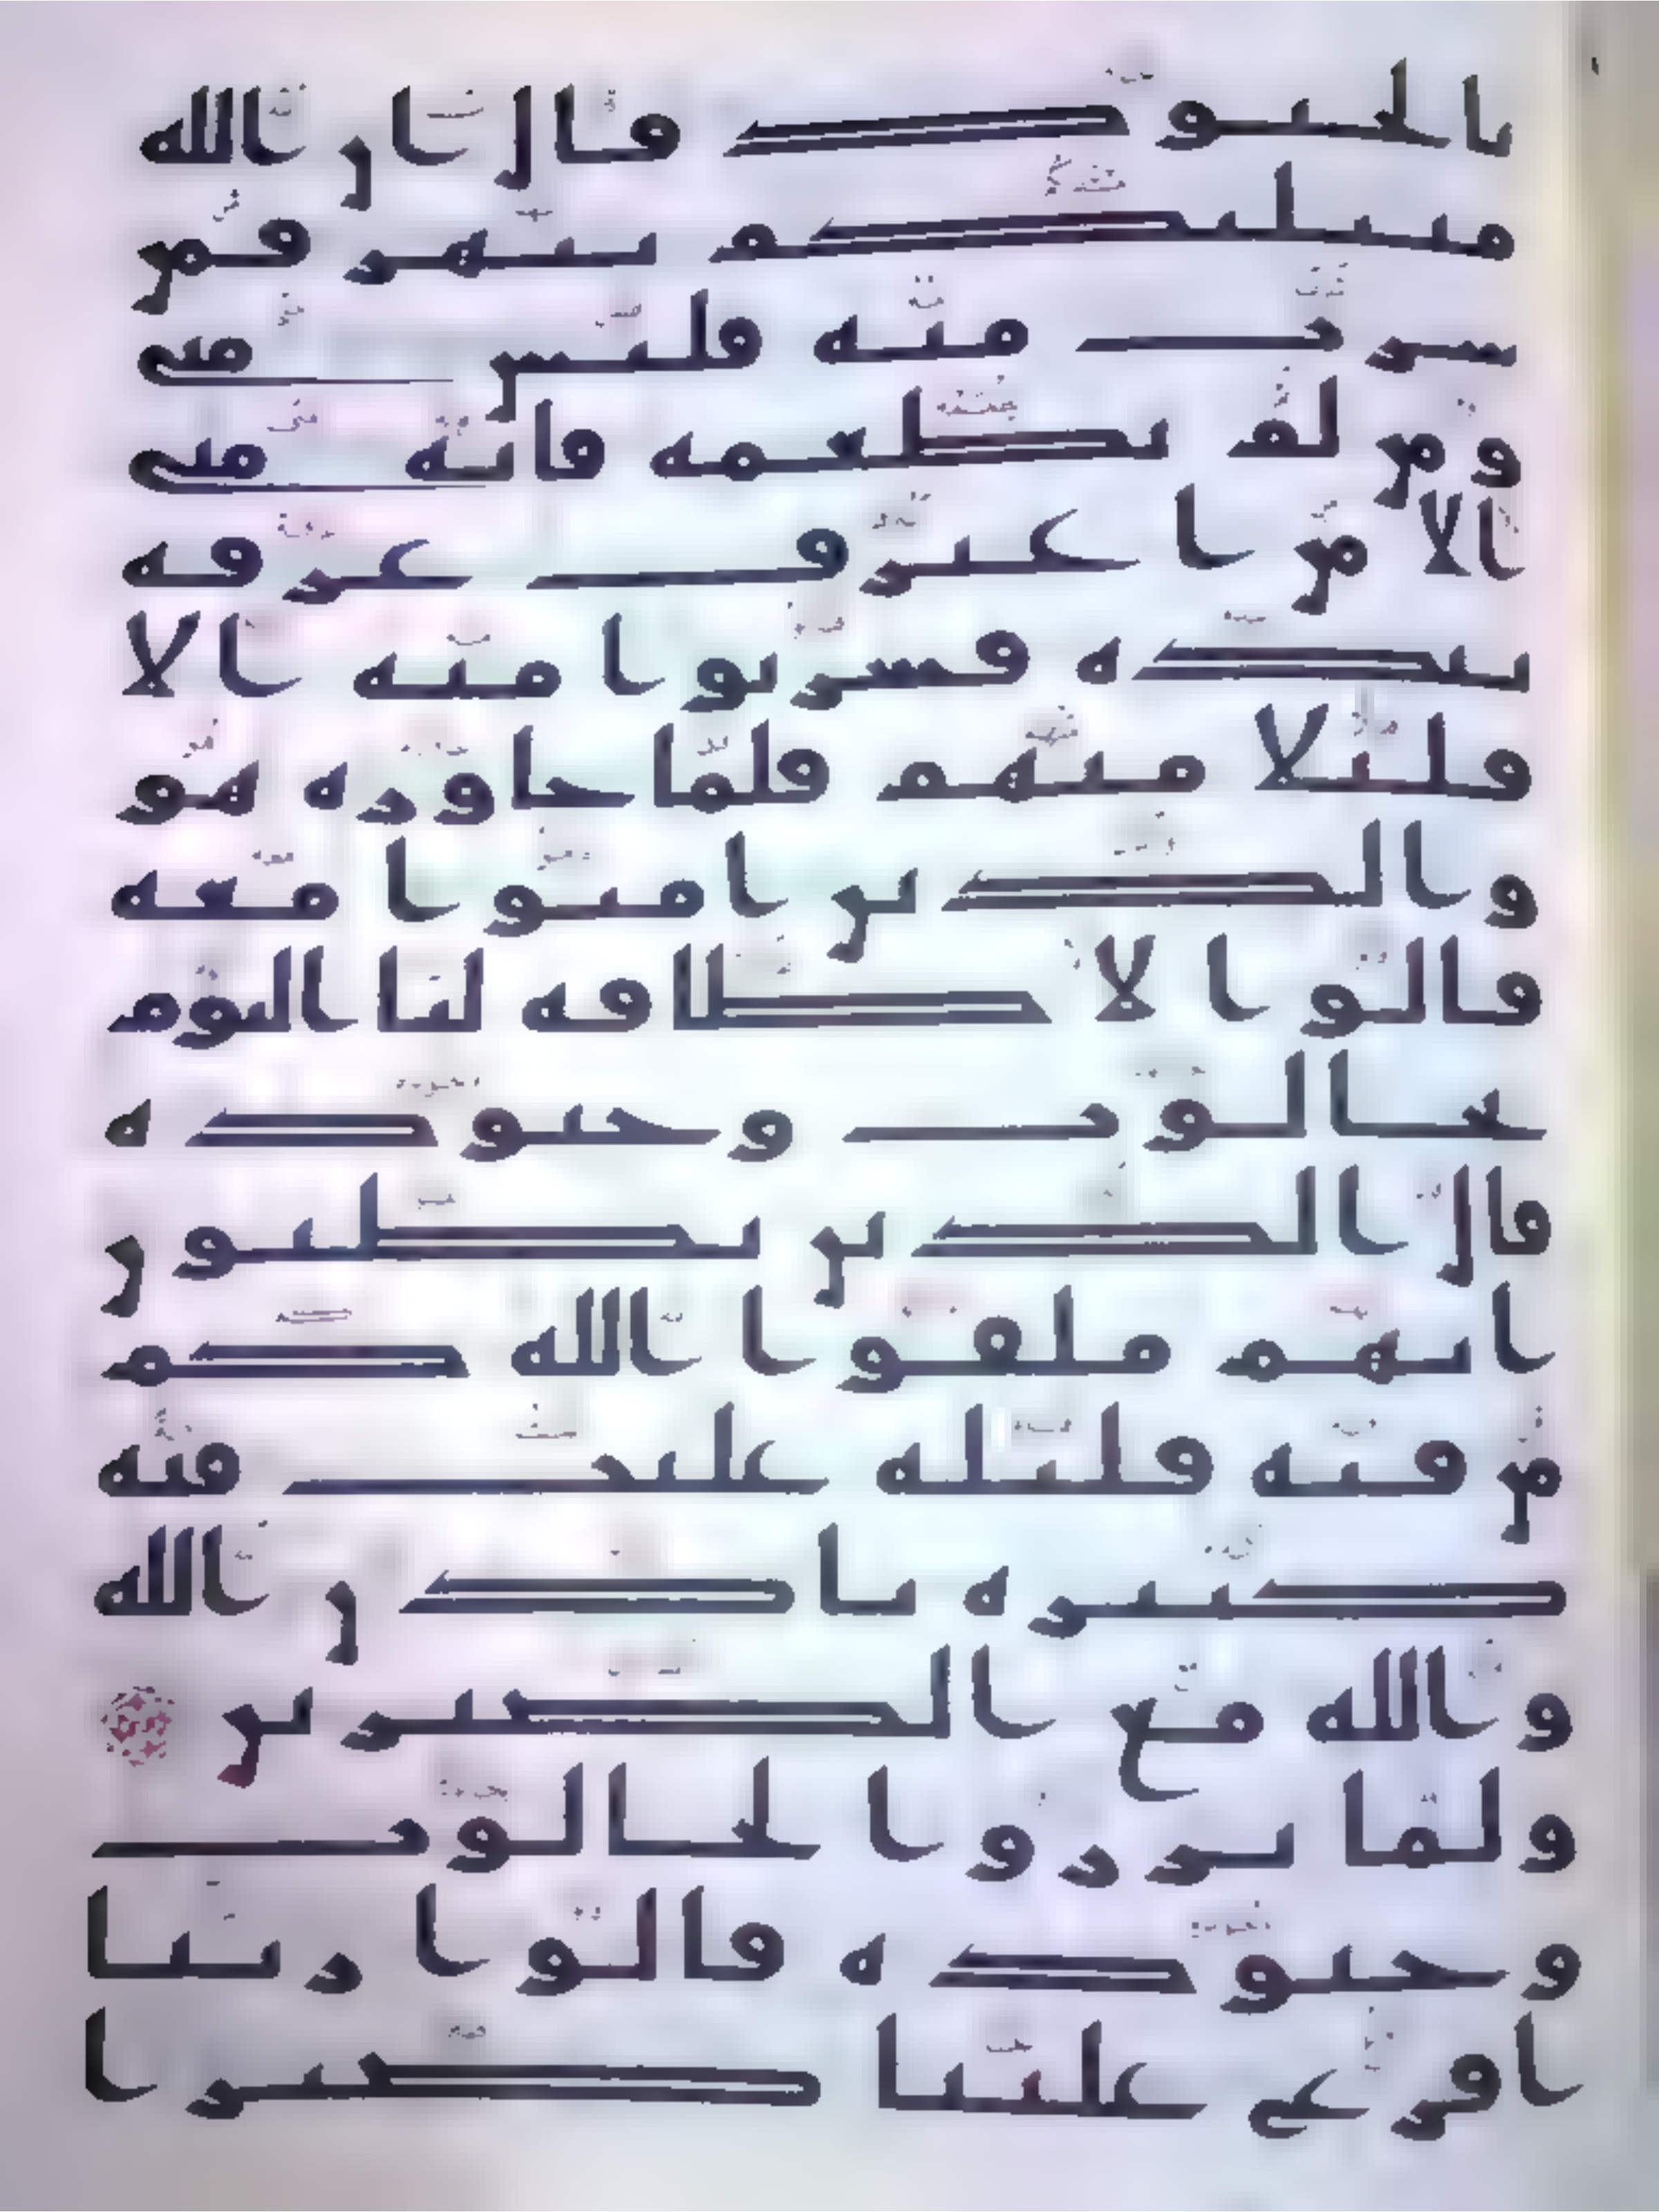 بالجنود قال ان الله
مبتليكم بنهر فمن
شرب منه فليس مني
ومن لم يطعمه فانه مني
الا من اغترف غرفه
بيده فشربوا منه الا
قليلا منهم فلما جاوزه هو
والذين امنوا معه
قالوا لا طاقه لنا اليوم
بجالوت وجنوده
قال الذين يظنون
انهم ملقوا الله كم
من فئه قليله غلبت فئه
كثيره باذن الله
والله مع الصبرين
ولما برزوا لجالوت
وجنوده قالوا ربنا
افرغ علينا صبرا